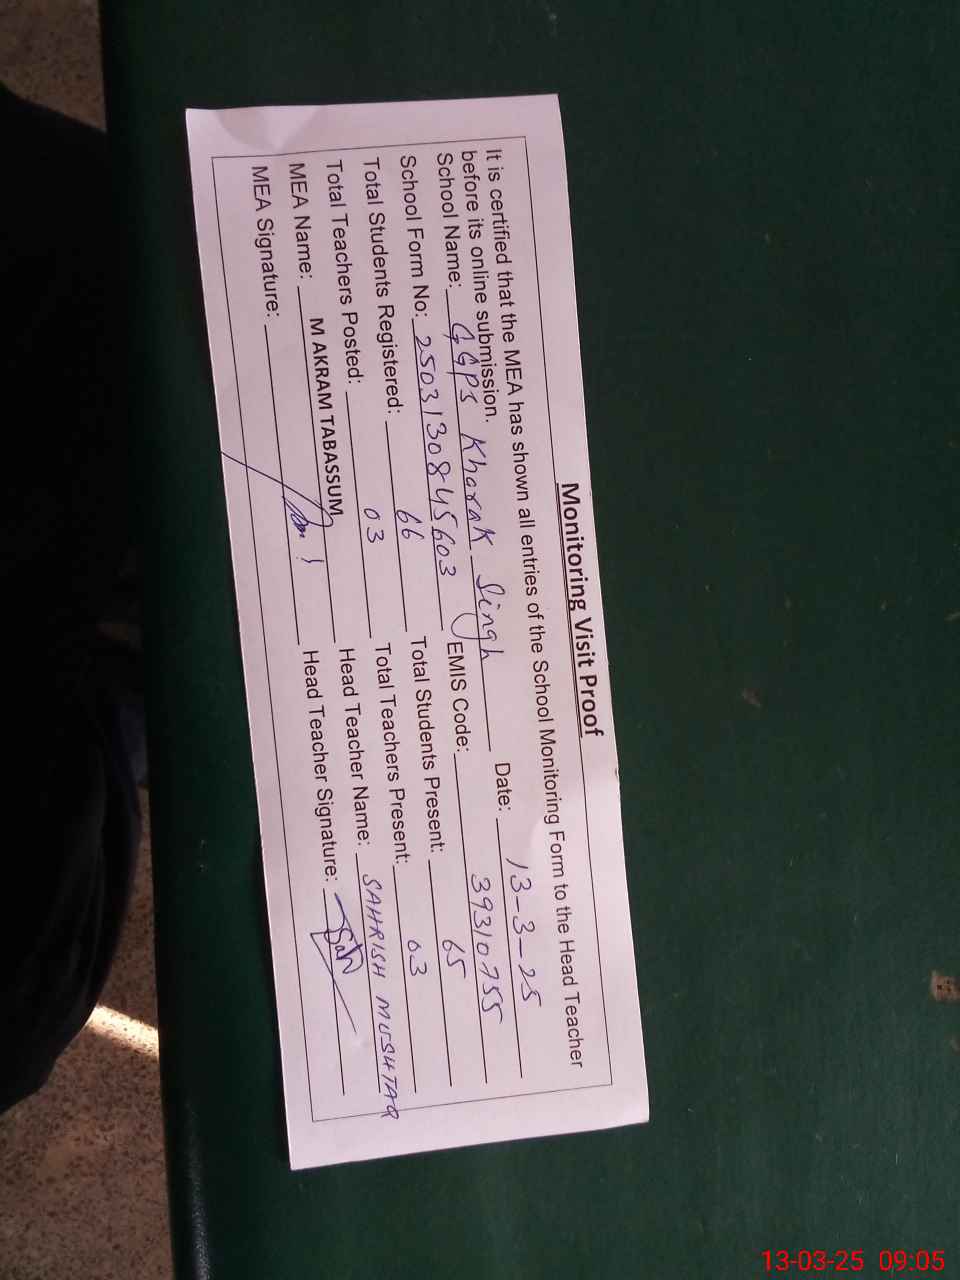 Monitoring Visit Proof
It is certified that the MEA has shown all entries of the School Monitoring Form to the Head Teacher
before its online submission.
School Name: GGPS Kharak Singh Date: 13-3-25
School Form No: 2503130845603 EMIS Code: 39310755
Total Students Registered: 66 Total Students Present: 65
Total Teachers Posted: 03 Total Teachers Present: 03
MEA Name: M AKRAM TABASSUM Head Teacher Name: SAHRISH MUSHTAQ
MEA Signature: Head Teacher Signature:
13-03-25 09:05